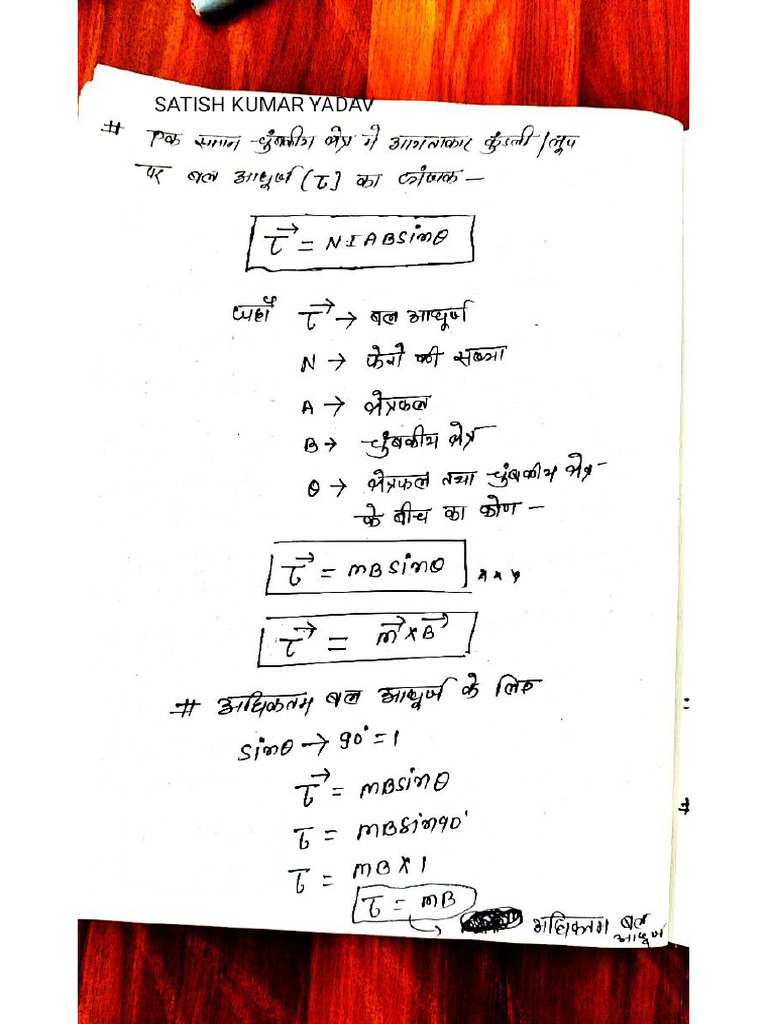 SATISH KUMAR YADAV
# एक समान चुंबकीय क्षेत्र मे आयताकार कुंडली/लूप
पर बल आघूर्ण (τ) का
τ⃗ = NIABsinθ
यहाँ τ⃗ → बल आघूर्ण
N → फेरो की संख्या
A → क्षेत्रफल
B → चुंबकीय क्षेत्र
θ → क्षेत्रफल तथा चुंबकीय क्षेत्र
के बीच का कोण –
τ⃗ = MBsinθ
τ⃗ = M⃗×B⃗
# अधिकतम बल आघूर्ण के लिए
sinθ → 90° = 1
τ⃗ = MBsinθ
τ = MBsin90°
τ = MB×1
τ = MB
अधिकतम बल
आघूर्ण